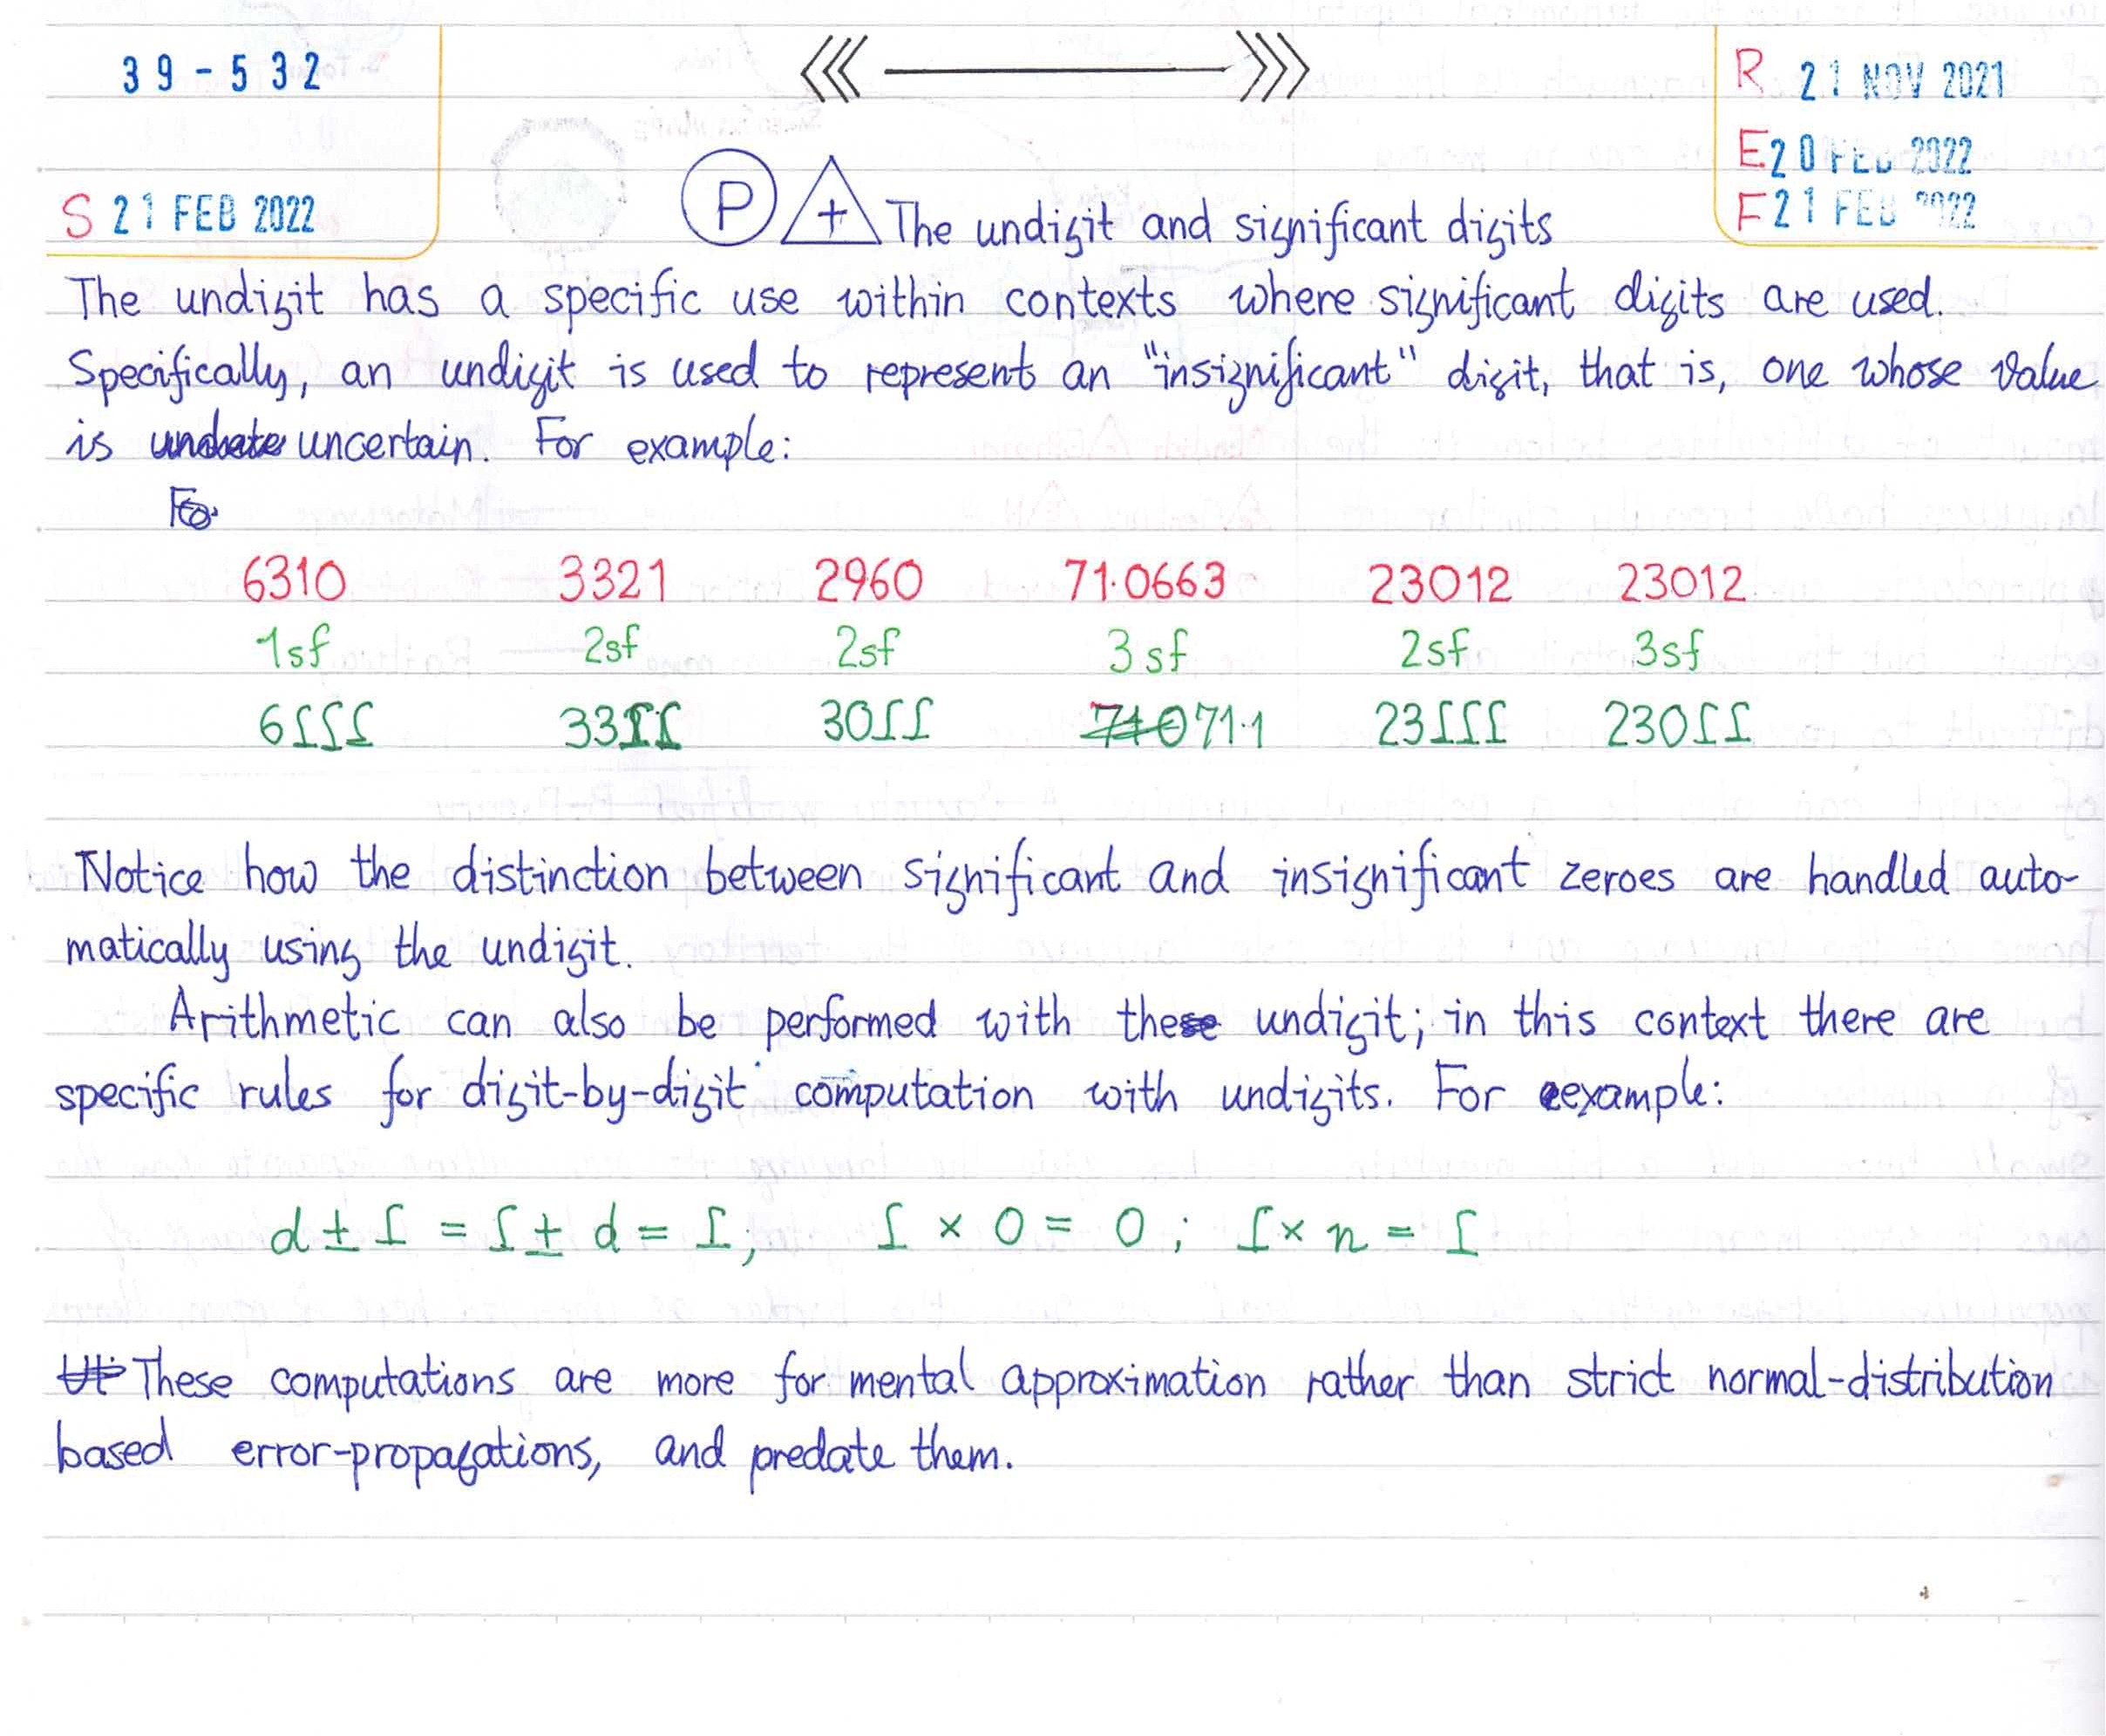 39-532
R 21 NOV 2021
E 20 FEB 2022
S 21 FEB 2022
F 21 FEB 2022
P + The undigit and significant digits
The undigit has a specific use within contexts where significant digits are used.
Specifically, an undigit is used to represent an "insignificant" digit, that is, one whose value
is uncertain. For example:
6310 3321 2960 71·0663 23012 23012
1sf 2sf 2sf 3sf 2sf 3sf
6ՁՁՁ 33ՁՁ 30ՁՁ 71·1 23ՁՁՁ 230ՁՁ
Notice how the distinction between significant and insignificant zeroes are handled auto-
matically using the undigit.
Arithmetic can also be performed with these undigit; in this context there are
specific rules for digit-by-digit computation with undigits. For eexample:
d ± Ձ = Ձ ± d = Ձ; Ձ × 0 = 0; Ձ × n = Ձ
These computations are more for mental approximation rather than strict normal-distribution
based error-propagations, and predate them.